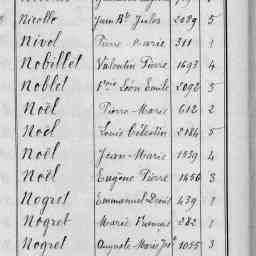 Nicolle Jean Bte Jules 2089 5
Nivol Pierre Marie 311 1
Nobillet Valentin Pierre 1693 4
Noblet Léon Emile 2092 5
Noël Pierre-Marie 612 2
Noël Louis Célestin 2184 5
Noël Jean-Marie 1539 4
Noël Eugène Pierre 1456 3
Nogret Emmanuel Denis 439 1
Nogret Marie 282 1
Nogret Auguste Marie 1055 3